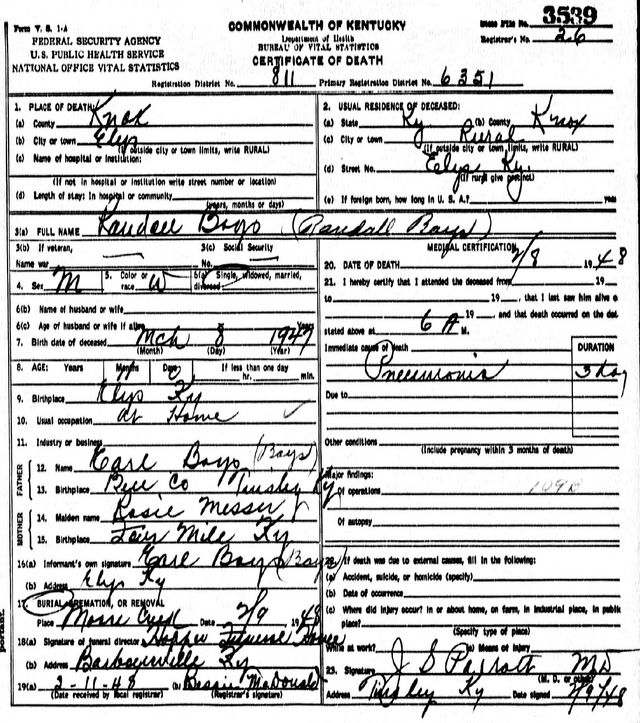 Form V. S. 1-A
COMMONWEALTH OF KENTUCKY
State File No. 3539
FEDERAL SECURITY AGENCY
Department of Health
Registrar's No. 26
U. S. PUBLIC HEALTH SERVICE
BUREAU OF VITAL STATISTICS
NATIONAL OFFICE VITAL STATISTICS
CERTIFICATE OF DEATH
Registration District No. 811 Primary Registration District No. 6351
1. PLACE OF DEATH:
(a) County Knox
(b) City or town Elys
(If outside city or town limits, write RURAL)
(c) Name of hospital or institution:
(If not in hospital or institution write street number or location)
(d) Length of stay: In hospital or community
(years, months or days)
2. USUAL RESIDENCE OF DECEASED:
(a) State Ky (b) County Knox
(c) City or town Rural
(If outside city or town limits, write RURAL)
(d) Street No. Elys Ky.
(If rural give precinct)
(e) If foreign born, how long in U. S. A.? years
3(a) FULL NAME Randall Bays (Randall Bays)
3(b) If veteran,
Name war
3(c) Social Security
No.
4. Sex M 5. Color or race W 6(a) Single, widowed, married, divorced
6(b) Name of husband or wife
6(c) Age of husband or wife if alive Years
7. Birth date of deceased Mch 8 1947
(Month) (Day) (Year)
8. AGE: Years Months Days If less than one day
hr. min.
9. Birthplace Elys Ky
10. Usual occupation at Home
11. Industry or business
FATHER
12. Name Earl Bays (Bays)
13. Birthplace Bell Co Tinsley Ky
MOTHER
14. Maiden name Rosie Messer
15. Birthplace Fair Mile Ky
16(a) Informant's own signature Earl Bays (Bays)
(b) Address Elys Ky
17. BURIAL, CREMATION, OR REMOVAL
Place Moore Date 2/9 1948
18(a) Signature of funeral director Hopper Funeral Home
(b) Address Barbourville Ky
19(a) 2-11-48 (b) Bessie McDonald
(Date received by local registrar) (Registrar's signature)
MEDICAL CERTIFICATION
20. DATE OF DEATH 2/8 1948
21. I hereby certify that I attended the deceased from
19 , to 19 , that I last saw him alive o
19 , and that death occurred on the dat
stated above at 6 A M.
Immediate cause of death
DURATION
Pneumonia 3 day
Due to
Other conditions
(Include pregnancy within 3 months of death)
Major findings:
Of operations
Of autopsy
If death was due to external causes, fill in the following:
(a) Accident, suicide, or homicide (specify)
(b) Date of occurrence
(c) Where did injury occur? in or about home, on farm, in industrial place, in public
place?
(Specify type of place)
While at work? (e) Means of Injury
23. Signature J S Parrott MD
(M. D. or other)
Address Tinsley Ky Date signed 2/9/48